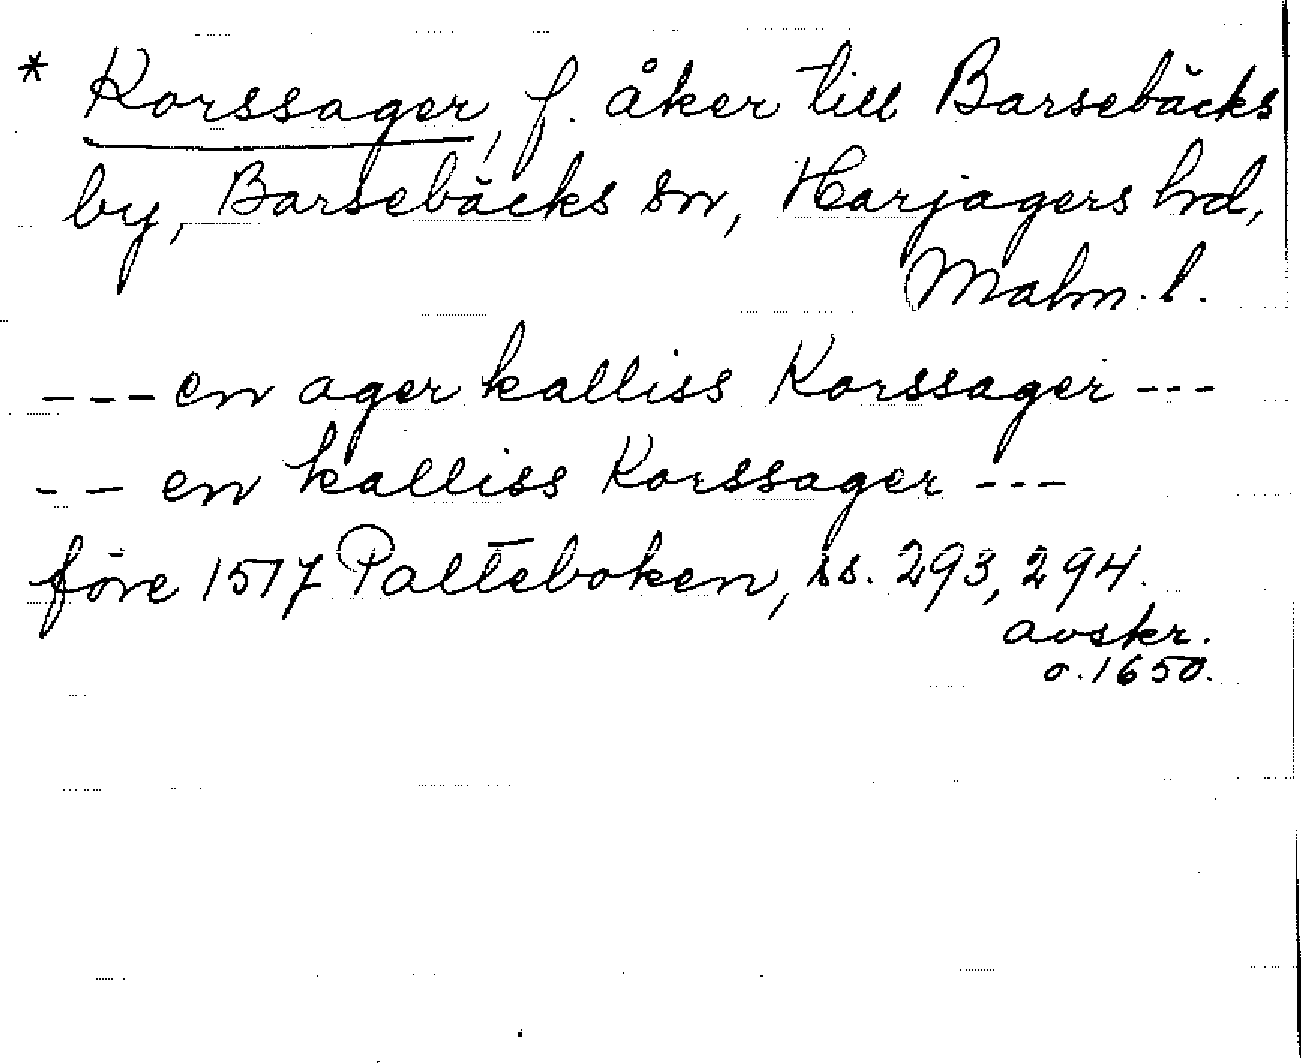 * Korssager, f. åker till Barsebäcks
by, Barsebäcks sn, Harjagers hd,
Malm. l.
--- en ager kalliss Korssager ---
-- en kalliss Korssager ---
före 1517 Palteboken, ss. 293, 294.
avskr.
o. 1650.